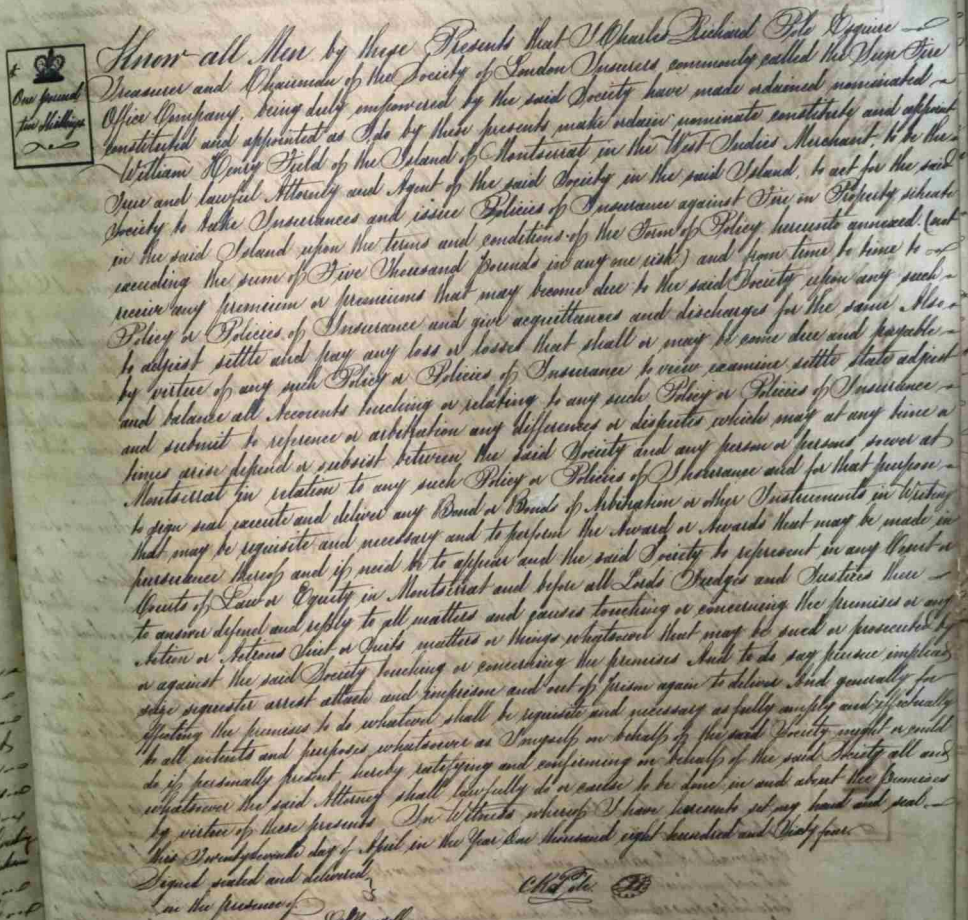 £
One pound
ten Shillings
Know all Men by these Presents that I Charles Richard Pole Esquire
Treasurer and Chairman of the Society of London Insurers commonly called the Sun Fire
Office Company, being duly empowered by the said Society have made ordained nominated
constituted and appointed as I do by these presents make ordain nominate constitute and appoint
William Henry Field of the Island of Montserrat in the West Indies Merchant, to be the
true and lawful Attorney and Agent of the said Society in the said Island, to act for the said
Society to take Insurances and issue Policies of Insurance against Fire on Property situate
in the said Island upon the terms and conditions of the Form of Policy hereunto annexed. (not
exceeding the sum of Five Thousand pounds in any one risk) and from time to time to
receive any premium or premiums that may become due to the said Society upon any such
Policy or Policies of Insurance and give acquittances and discharges for the same Also
to adjust settle and pay any loss or losses that shall or may be come due and payable
by virtue of any such Policy or Policies of Insurance to view examine settle state adjust
and balance all Accounts touching or relating to any such Policy or Policies of Insurance
and submit to reference or arbitration any differences or disputes which may at any time or
times arise depend or subsist between the said Society and any person or persons soever at
Montserrat in relation to any such Policy or Policies of Insurance and for that purpose
to sign seal execute and deliver any Bond or Bonds of Arbitration or other Instruments in Writing
that may be requisite and necessary and to perform the Award or Awards that may be made in
pursuance thereof and if need be to appear and the said Society to represent in any Court or
Courts of Law or Equity in Montserrat and before all Lords Judges and Justices there
to answer defend and reply to all matters and causes touching or concerning the premises or any
Action or Actions Suit or Suits matters or things whatsoever that may be sued or prosecuted by
or against the said Society touching or concerning the premises And to do say pursue implead
seize sequester arrest attach and imprison and out of prison again to deliver And generally for
effecting the premises to do whatever shall be requisite and necessary as fully amply and effectually
to all intents and purposes whatsoever as I myself on behalf of the said Society might or could
do if personally present hereby ratifying and confirming on behalf of the said Society all and
whatsoever the said Attorney shall lawfully do or cause to be done, in and about the premises
by virtue of these presents In Witness whereof I have hereunto set my hand and seal
this Twentyseventh day of April in the Year One thousand eight hundred and Sixty four.
Signed sealed and delivered
in the presence of
C R Pole